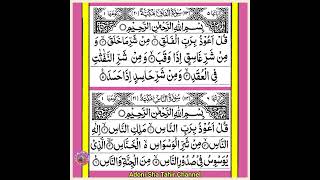 سُوْرَةُ الْفَلَقِ مَكِّيَّةٌ
بِسْمِ اللّٰهِ الرَّحْمٰنِ الرَّحِيْمِ
قُلْ اَعُوْذُ بِرَبِّ الْفَلَقِ ۝ مِنْ شَرِّ مَا خَلَقَ ۝ وَ
مِنْ شَرِّ غَاسِقٍ اِذَا وَقَبَ ۝ وَمِنْ شَرِّ النَّفّٰثٰتِ
فِى الْعُقَدِ ۝ وَمِنْ شَرِّ حَاسِدٍ اِذَا حَسَدَ ۝
سُوْرَةُ النَّاسِ مَكِّيَّةٌ
بِسْمِ اللّٰهِ الرَّحْمٰنِ الرَّحِيْمِ
قُلْ اَعُوْذُ بِرَبِّ النَّاسِ ۝ مَلِكِ النَّاسِ ۝ اِلٰهِ
النَّاسِ ۝ مِنْ شَرِّ الْوَسْوَاسِ ۙ الْخَنَّاسِ ۝ الَّذِيْ
يُوَسْوِسُ فِيْ صُدُوْرِ النَّاسِ ۝ مِنَ الْجِنَّةِ وَ النَّاسِ ۝
Adeni Sha Tahir Channel